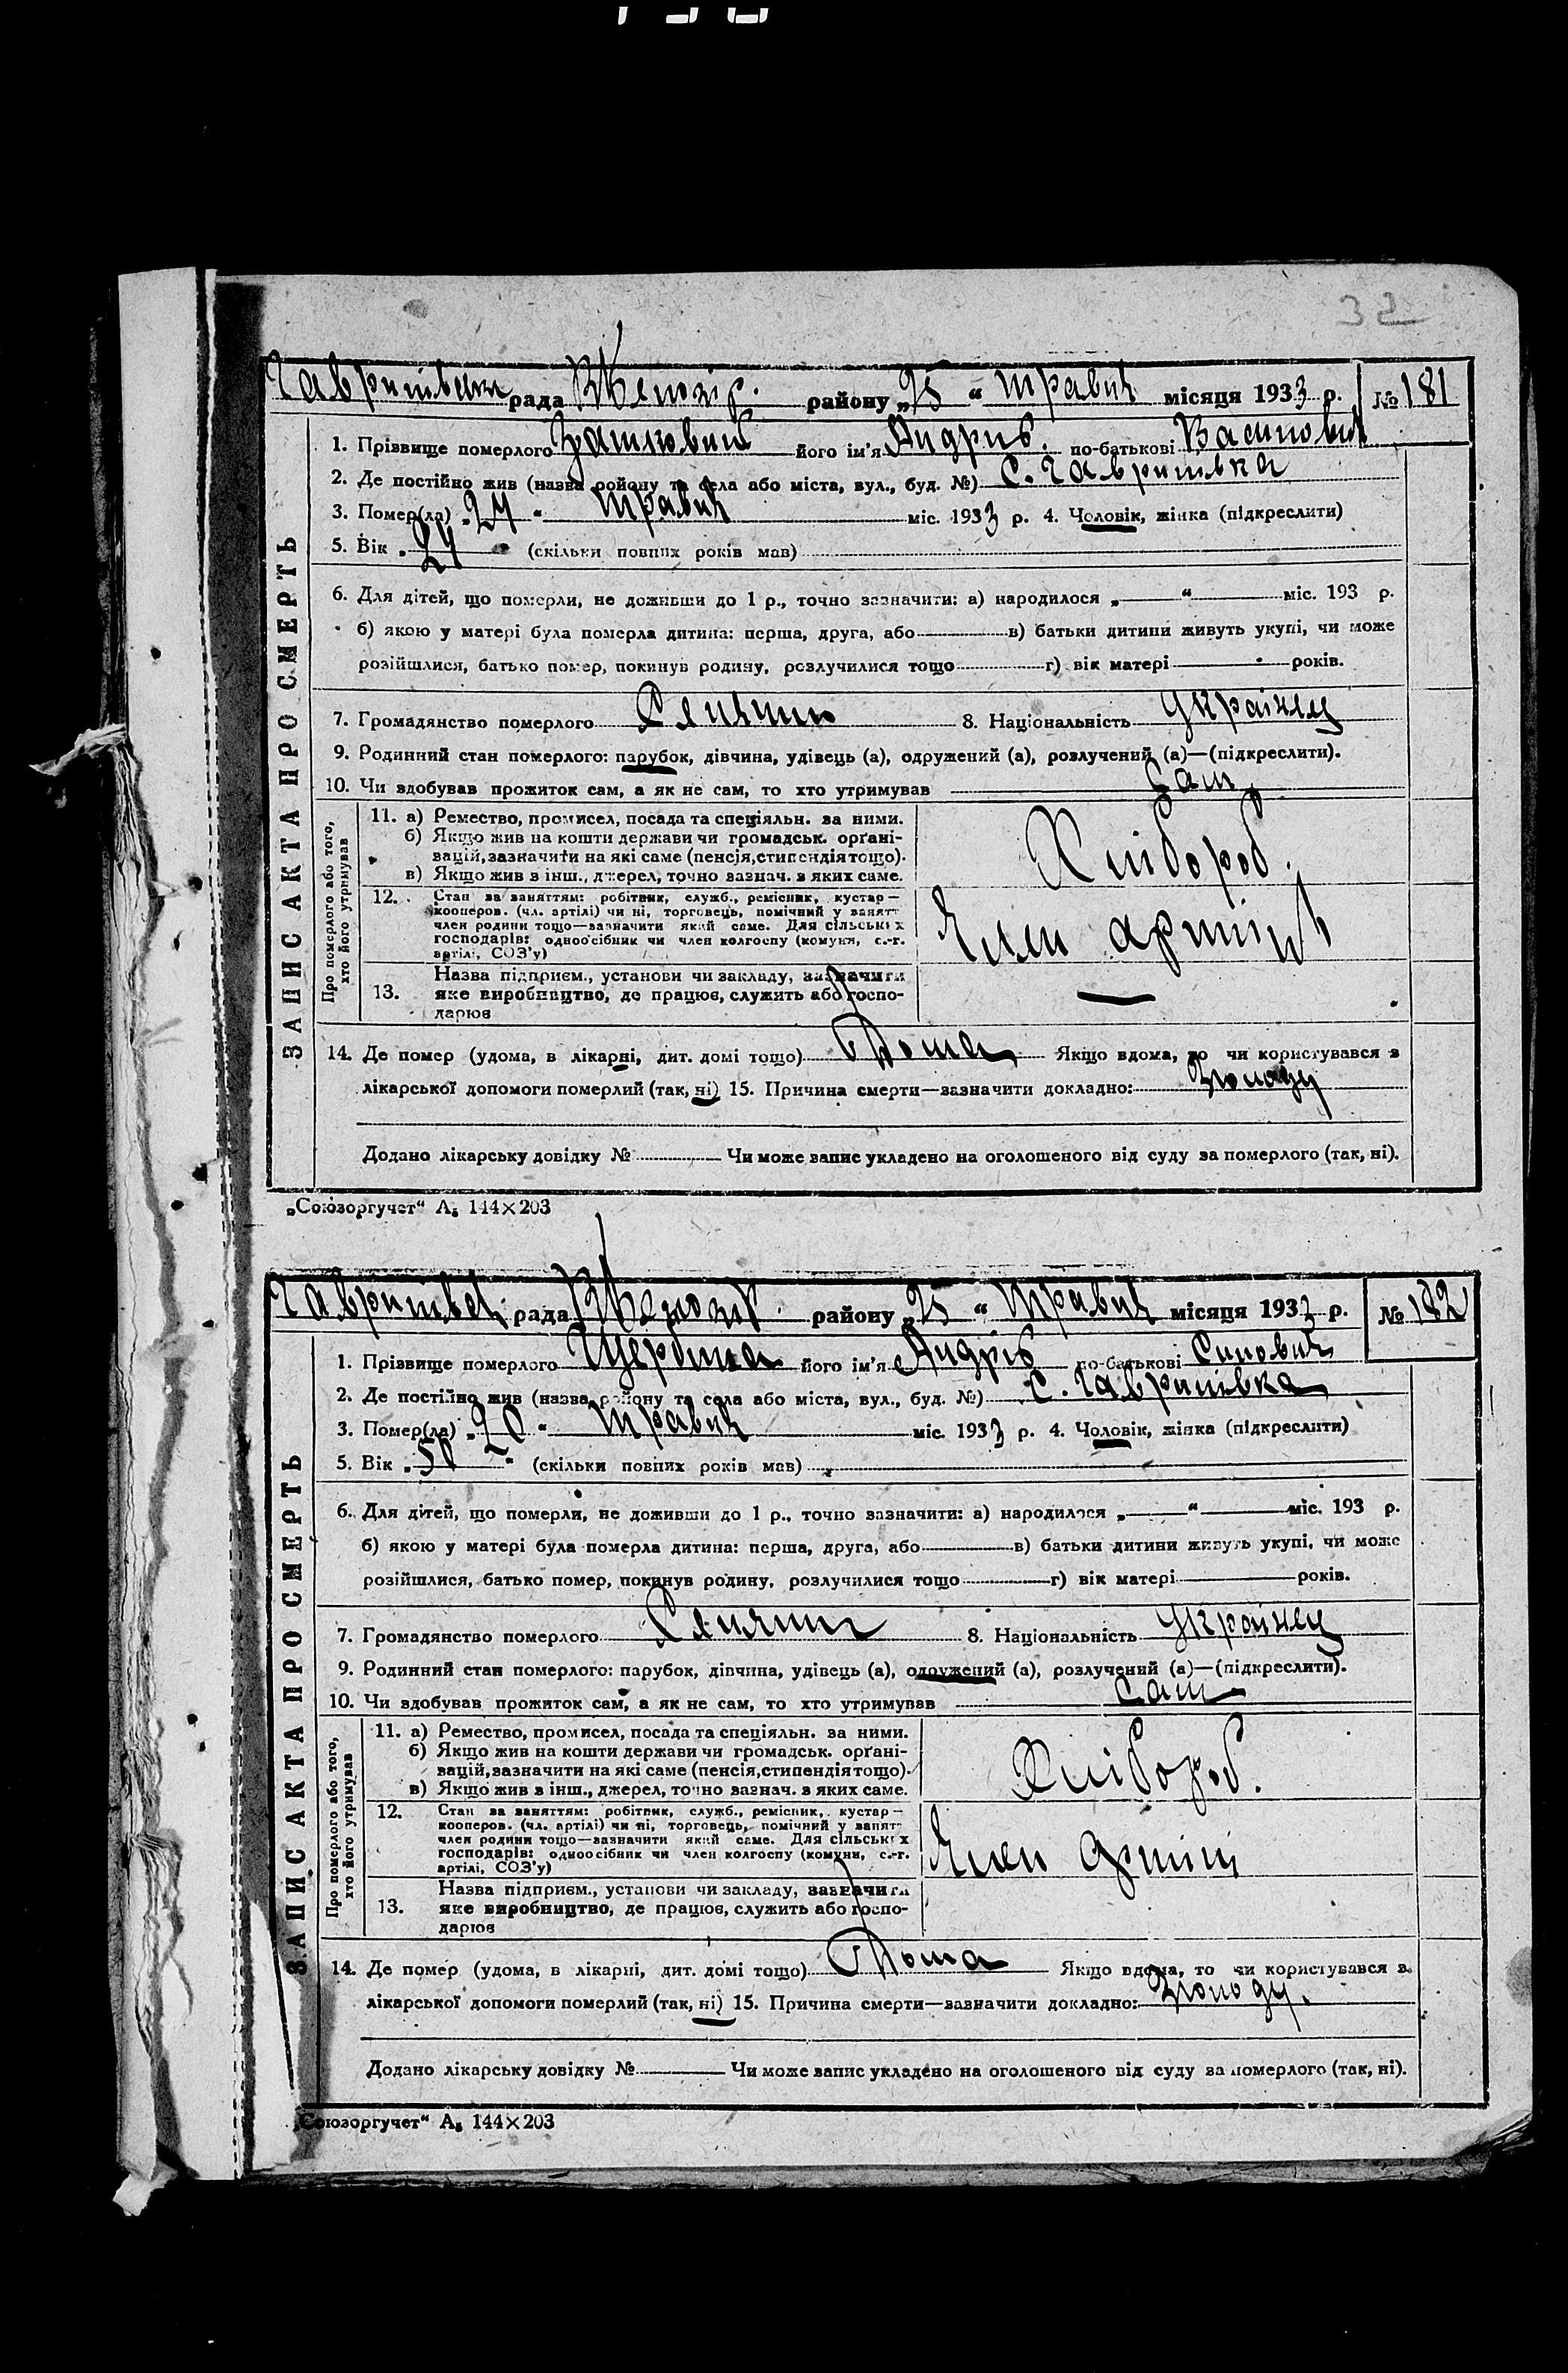 32
рада району „25 “ травня місяця 1933 р. № 181
ЗАПИС АКТА ПРО СМЕРТЬ
1. Прізвище померлого його ім'я Андрій по-батькові
2. Де постійно жив (назва району та села або міста, вул., буд. №) с. Гавришівка
3. Помер(ла) „24 “ травня міс. 1933 р. 4. Чоловік, жінка (підкреслити)
5. Вік „ 24 “ (скільки повних років мав)
6. Для дітей, що померли, не доживши до 1 р., точно зазначити: а) народилося „ “ міс. 193 р.
б) якою у матері була померла дитина: перша, друга, або в) батьки дитини живуть укупі, чи може
розійшлися, батько помер, покинув родину, розлучилися тощо г) вік матері років.
7. Громадянство померлого Селянин 8. Національність Українец
9. Родинний стан померлого: парубок, дівчина, удівець (а), одружений (а), розлучений (а)—(підкреслити).
10. Чи здобував прожиток сам, а як не сам, то хто утримував Сам
Про померлого або того, хто його утримував
11. а) Ремество, промисел, посада та спеціяльн. за ними.
б) Якщо жив на кошти держави чи громадськ. орґані-
зацій, зазначити на які саме (пенсія, стипендія тощо).
в) Якщо жив з інш., джерел, точно зазнач. з яких саме.
Хлібороб.
12. Стан за заняттям: робітник, служб., ремісник, кустар—
кооперов. (чл. артілі) чи ні, торговець, помічний у занятт
член родини тощо—зазначити який саме. Для сільських
господарів: одноосібник чи член колгоспу (комуни, с.-г.
артілі, СОЗ'у)
Член артілі
13. Назва підприєм., установи чи закладу, зазначити
яке виробництво, де працює, служить або госпо-
дарює
—
14. Де помер (удома, в лікарні, дит. домі тощо) Дома Якщо вдома, то чи користувався з
лікарської допомоги померлий (так, ні) 15. Причина смерти—зазначити докладно: Зголоду
Додано лікарську довідку № Чи може запис укладено на оголошеного від суду за померлого (так, ні).
„Союзоргучет“ А₅ 144×203
рада району „25 “ травня місяця 1933 р. № 182
ЗАПИС АКТА ПРО СМЕРТЬ
1. Прізвище померлого Щербина його ім'я Андрій по-батькові
2. Де постійно жив (назва району та села або міста, вул., буд. №) с. Гавришівка
3. Помер(ла) „20 “ травня міс. 1933 р. 4. Чоловік, жінка (підкреслити)
5. Вік „ 50 “ (скільки повних років мав)
6. Для дітей, що померли, не доживши до 1 р., точно зазначити: а) народилося „ “ міс. 193 р.
б) якою у матері була померла дитина: перша, друга, або в) батьки дитини живуть укупі, чи може
розійшлися, батько помер, покинув родину, розлучилися тощо г) вік матері років.
7. Громадянство померлого Селянин 8. Національність Українец
9. Родинний стан померлого: парубок, дівчина, удівець (а), одружений (а), розлучений (а)—(підкреслити).
10. Чи здобував прожиток сам, а як не сам, то хто утримував Сам
Про померлого або того, хто його утримував
11. а) Ремество, промисел, посада та спеціяльн. за ними.
б) Якщо жив на кошти держави чи громадськ. орґані-
зацій, зазначити на які саме (пенсія, стипендія тощо).
в) Якщо жив з інш., джерел, точно зазнач. з яких саме.
Хлібороб.
12. Стан за заняттям: робітник, служб., ремісник, кустар—
кооперов. (чл. артілі) чи ні, торговець, помічний у занятт
член родини тощо—зазначити який саме. Для сільських
господарів: одноосібник чи член колгоспу (комуни, с.-г.
артілі, СОЗ'у)
Член артілі
13. Назва підприєм., установи чи закладу, зазначити
яке виробництво, де працює, служить або госпо-
дарює
14. Де помер (удома, в лікарні, дит. домі тощо) Дома Якщо вдома, то чи користувався з
лікарської допомоги померлий (так, ні) 15. Причина смерти—зазначити докладно: Зголоду.
Додано лікарську довідку № Чи може запис укладено на оголошеного від суду за померлого (так, ні).
„Союзоргучет“ А₅ 144×203